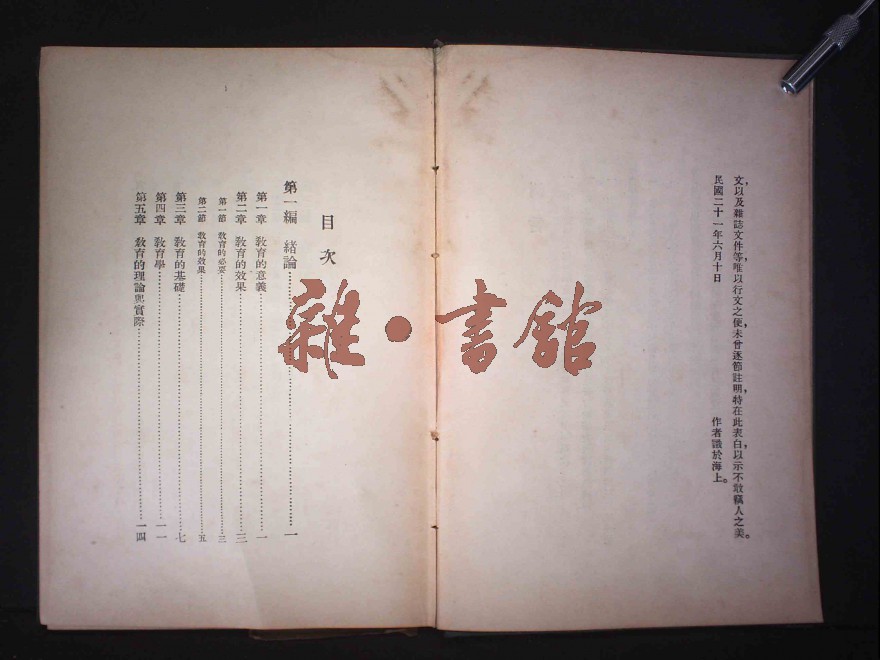 文，以及雜誌文件等，唯以行文之便，未曾逐節註明，特在此表白，以示不敢竊人之美。
民國二十一年六月十日
作者識於海上。
目次
第一編 緒論……一
第一章 教育的意義……一
第二章 教育的效果……三
第一節 教育的必要……三
第二節 教育的效果……五
第三章 教育的基礎……七
第四章 教育學……一一
第五章 教育的理論與實際……一四
雜·書館